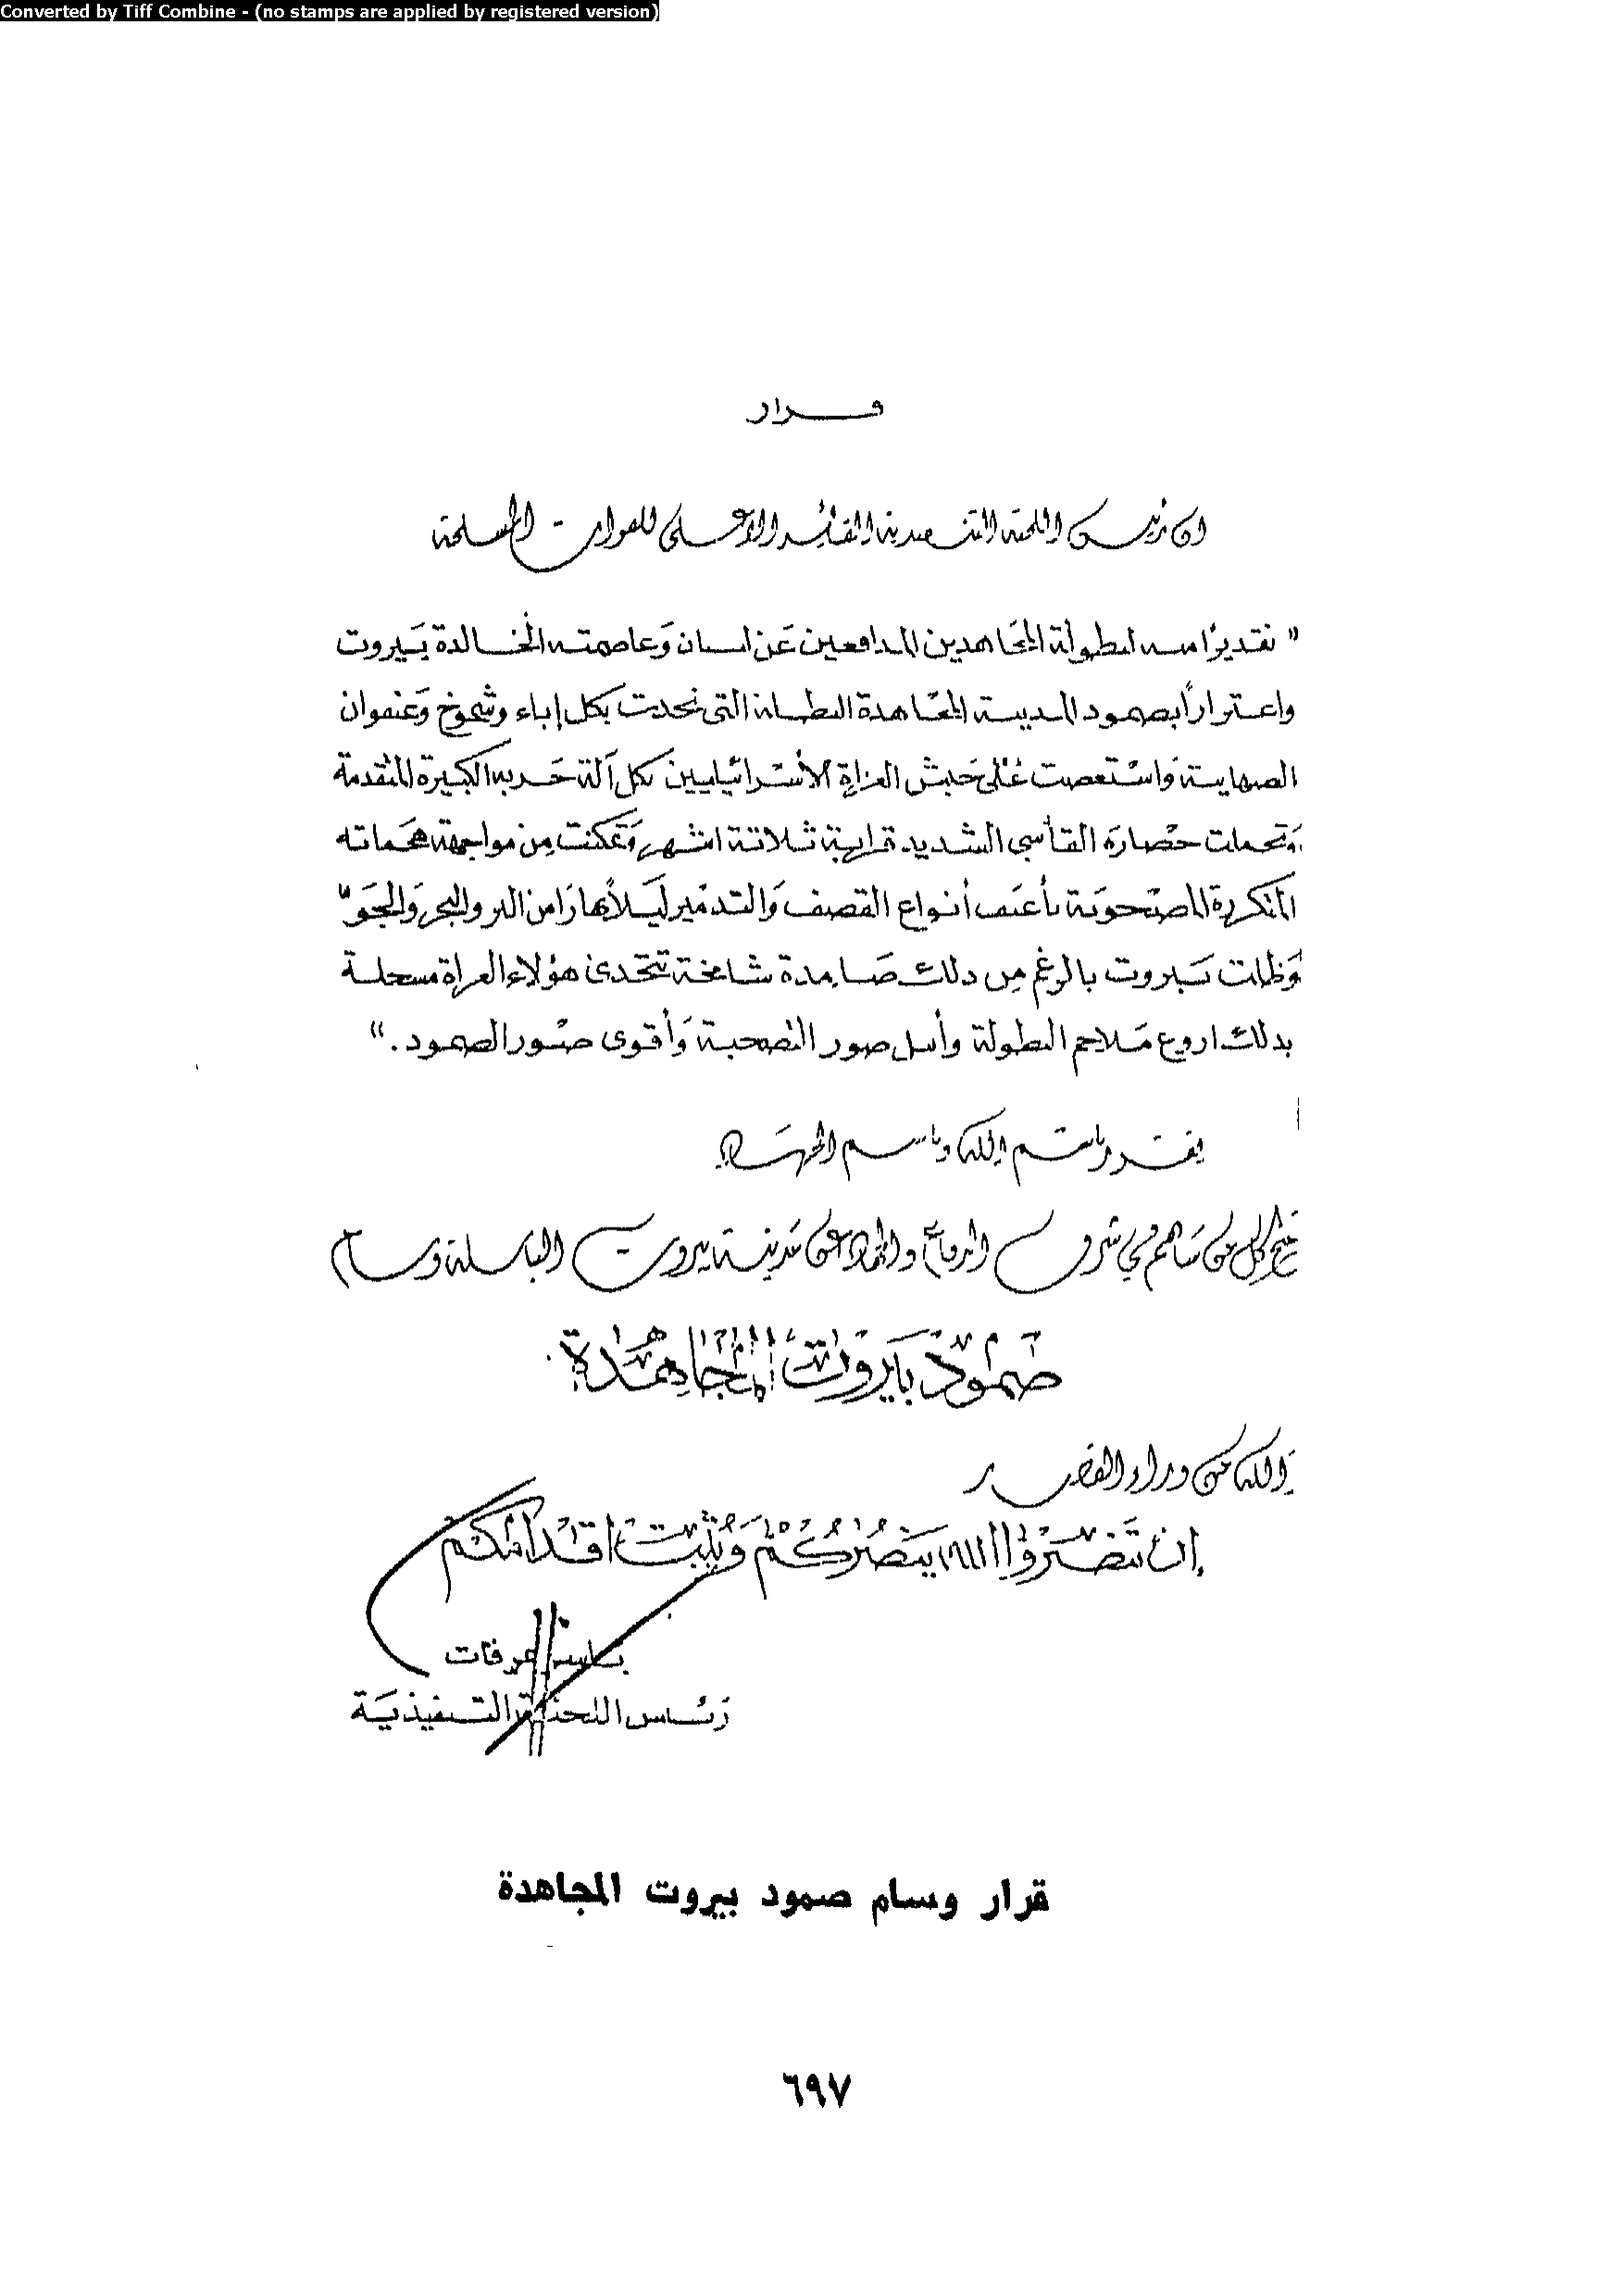 Converted by Tiff Combine - (no stamps are applied by registered version)
قرار
ان رئيس اللجنة التنفيذية القائد الاعلى للقوات المسلحة
" تقديرًا منه لبطولة المجَاهدين المدافعين عَن لبنان وَعاصمته الخالدة بَيروت
واعتزازًا بصمود المدينة المجَاهدة البطلة التي تحدت بكل إباء وشموخ وَعنفوان
الصهاينة وَاستعصت عَلى جَيش الغزاة الأسرائيليين بكل آلة حَربه الكبيرة المتقدمة
وَتحملت حصَاره القاسي الشديد قرابة ثلاثة اشهر وَتمكنت مِن مواجهة هجَماته
المتكررة المصحوبَة بأعنَف أنواع القصف وَالتدمير ليَلاً نهارًا من البر والبحر وَالجَوّ
وَظلت بَيروت بالرغم مِن ذلك صَامدة شامخة تتحَدى هؤلاء الغزاة مسجلة
بذلك اروع مَلاحم البطولة وأنبل صور التضحية وَأقوى صُور الصمود . "
يقرر باسم الله وباسم الثورة
منح كل من ساهم في شرف الدفاع والجهاد عن مدينة بيروت الباسلة وسام
صمود بَيروت المجَاهدة
والله من وراء القصد
إن تنصروا الله ينصركم ويثبت اقدامكم
ياسر عرفات
رَئيس اللجنة التنفيذيَة
قرار وسام صمود بيروت المجاهدة
٦٩٧